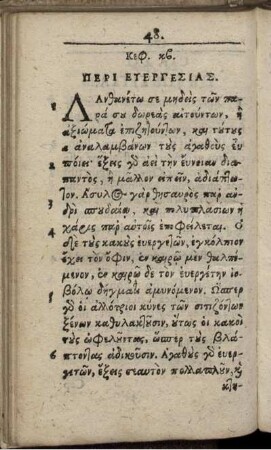 48.
Κεφ. κβ.
ΠΕΡΙ ΕΥΕΡΓΕΣΙΑΣ.
ΛΑνθανέτω σε μηδεὶς τῶν πα-
ρὰ σȣ δωρεὰς αἰτούντων, ἢ
ἀξιώματα ἐπιζητούντων, καὶ τȣ́τȣς
ἀναλαμβάνων τȣς ἀγαθοὺς εὐ
ποίει· ἕξεις γὰ ἀεὶ τὴν ἔυνοιαν δια-
παντὸς, ἢ μᾶλλον εἰπεῖν, ἀδιάπτω-
τον. Ἄσυλος γὰρ θησαυρὸς παρ ἀν-
δρὶ σπουδαίῳ, καὶ πολυπλασίων ἡ
χάρις παρ αὐτοῖς ἐποφείλεται. Ὁ
δὲ τȣς κακȣς ἐυεργετῶν, ἐγκόλπιον
ἔχει τὸν ὄφιν, ἐν καιρῷ μὲν θαλπό-
μενον, ἐν καιρῷ δὲ τὸν ἐυεργέτην ἰο-
βόλῳ δήγματι ἀμυνόμενον. Ὥσπερ
γὰ οἱ ἀλλότριοι κύνες τῶν σιτιζόντων
ξένων καθυλακτȣ͂σιν, ȣ́τως οἱ κακοὶ
τȣς ὠφελȣ͂ντας, ὥσπερ τȣς βλά-
πτοντας ἀδικοῦσιν. Ἀγαθȣς γὰ ἐυερ-
γετῶν, ἕξεις σεαυτὸν πολλαπλȣ͂ν, καὶ